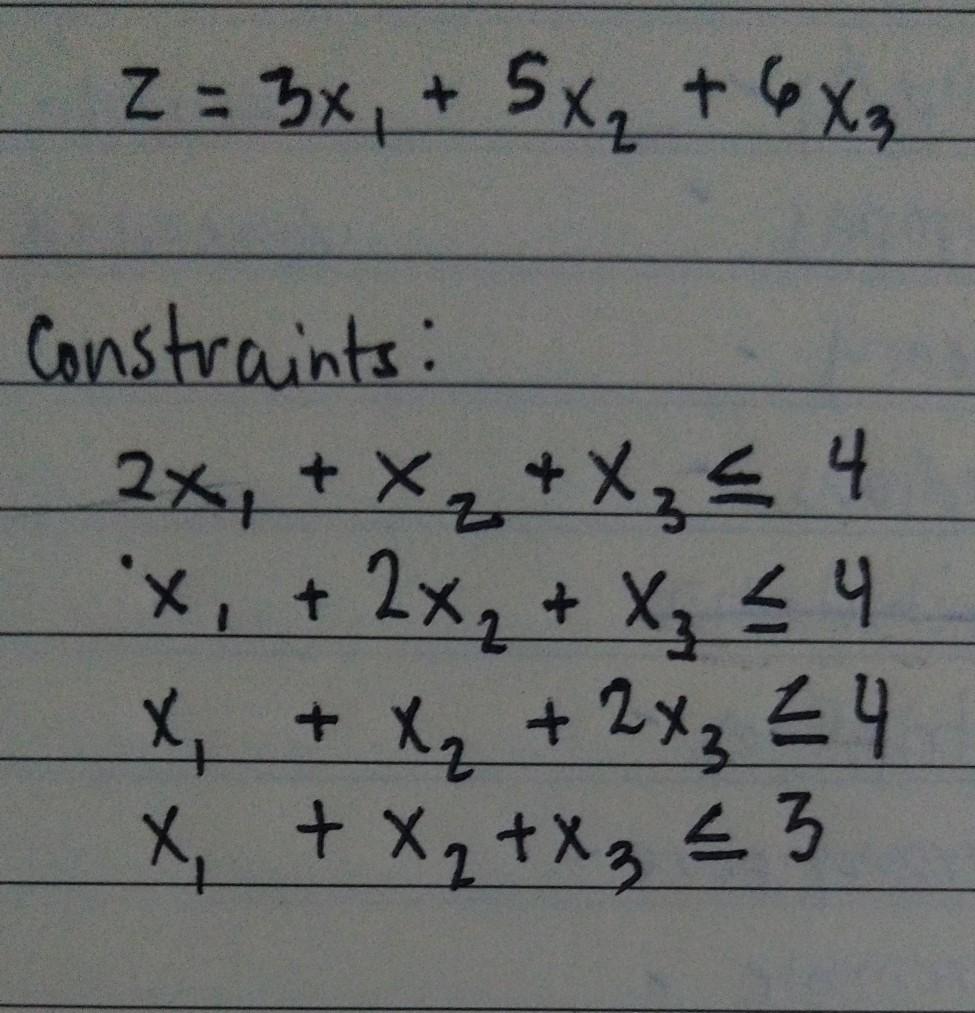 z = 3x₁ + 5x₂ + 6x₃
Constraints:
2x₁ + x₂ + x₃ ≤ 4
x₁ + 2x₂ + x₃ ≤ 4
x₁ + x₂ + 2x₃ ≤ 4
x₁ + x₂ + x₃ ≤ 3